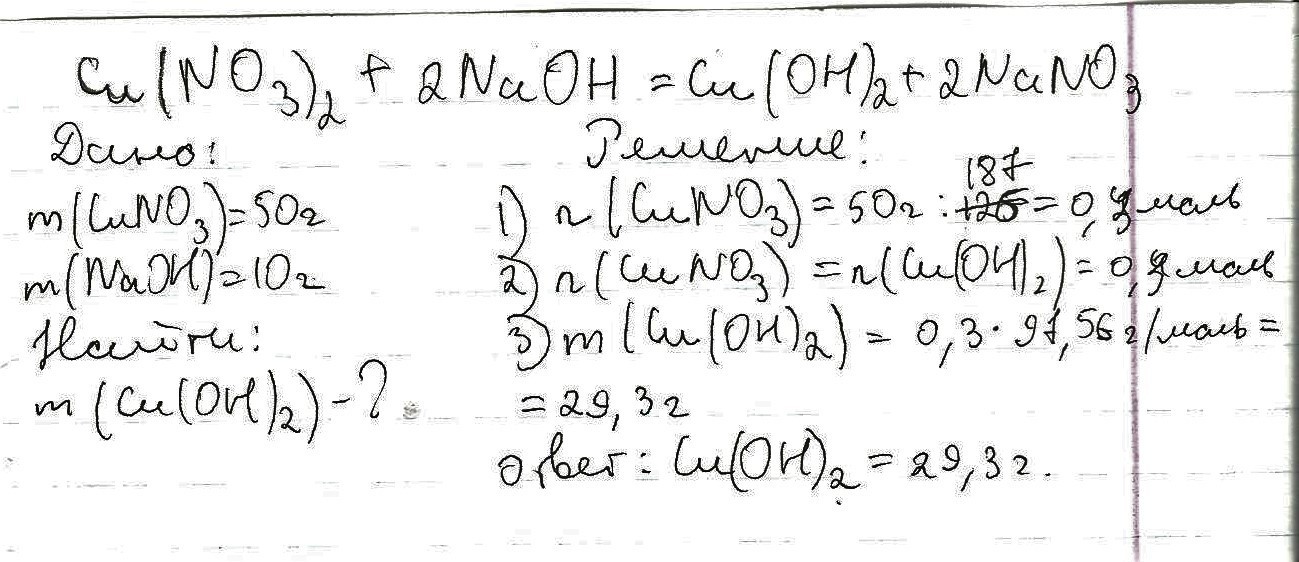 Cu(NO3)2 + 2NaOH = Cu(OH)2 + 2NaNO3
Дано:
m(CuNO3)=50г
m(NaOH)=10г
Найти:
m(Cu(OH)2)-?
Решение:
1) n(CuNO3)=50г:187=0,3моль
2) n(CuNO3)=n(Cu(OH)2)=0,3моль
3) m(Cu(OH)2)=0,3·97,56г/моль=
=29,3г
Ответ: Cu(OH)2=29,3г.